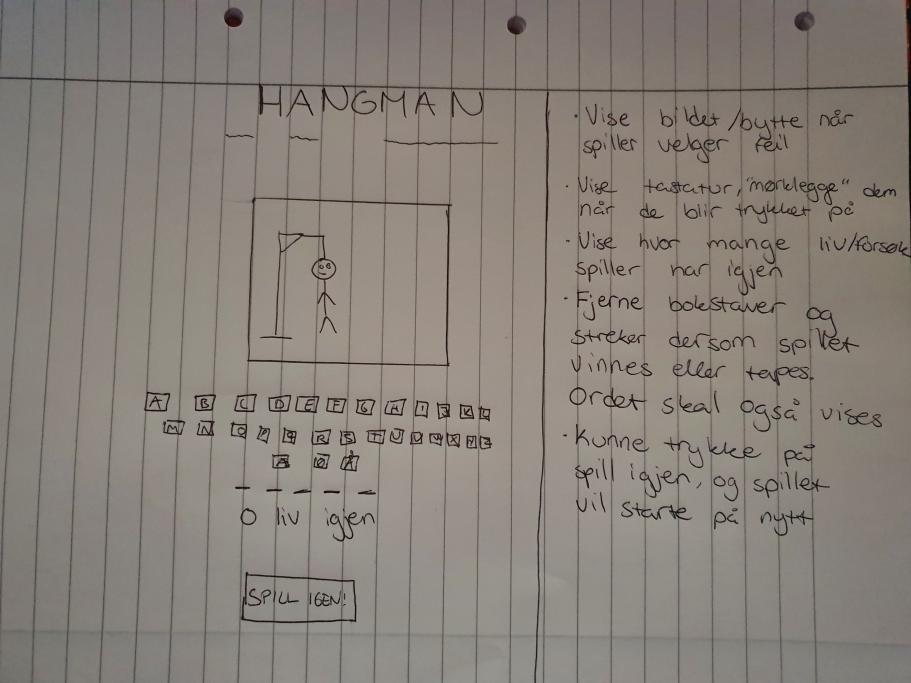 HANGMAN
A B C D E F G H I J K L
M N O P Q R S T U V W X Y Z
Æ Ø Å
0 liv igjen
SPILL IGEN!
· Vise bildet/bytte når
spiller velger feil
· Vise tastatur, "mørklegge" dem
når de blir trykket på
· Vise hvor mange liv/forsøk
spiller har igjen
· Fjerne bokstaver og
streker dersom spillet
vinnes eller tapes.
Ordet skal også vises
· Kunne trykke på
spill igjen, og spillet
vil starte på nytt